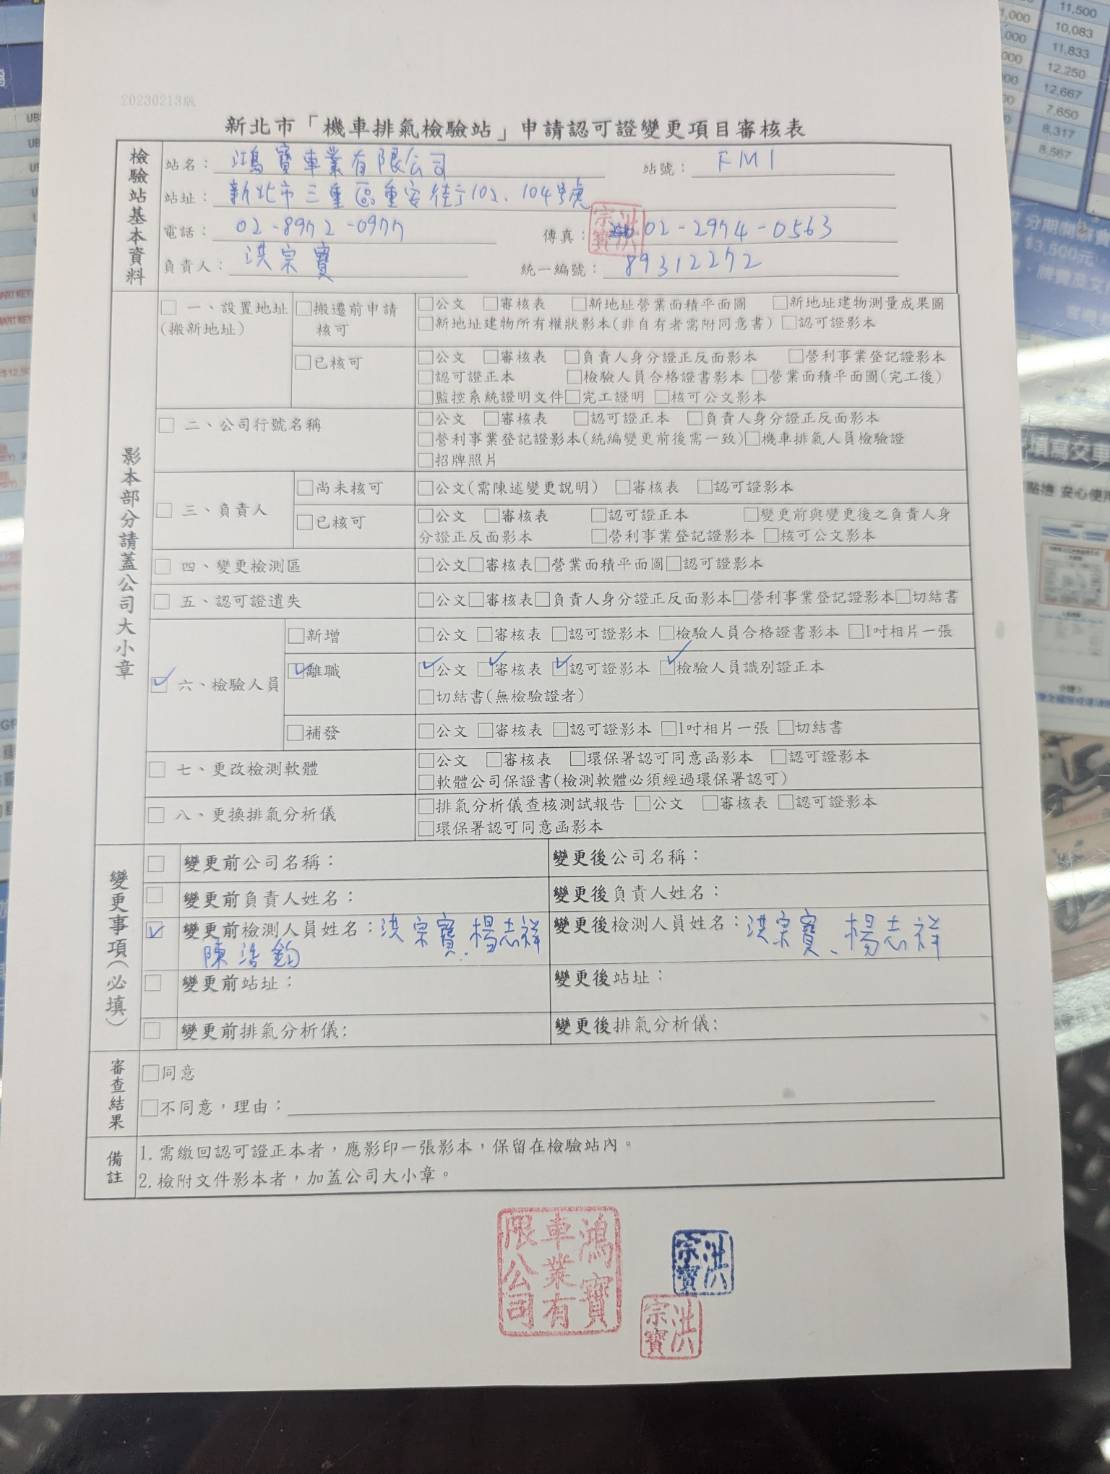 20230213版
新北市「機車排氣檢驗站」申請認可證變更項目審核表
檢驗站基本資料
站名：鴻寶車業有限公司 站號：FM1
站址：新北市三重區重安街102、104號
電話：02-8972-0977 傳真：02-2974-0563
負責人：洪宗寶 統一編號：89312272
影本部分請蓋公司大小章
□ 一、設置地址(搬新地址)
□搬遷前申請核可
□公文 □審核表 □新地址營業面積平面圖 □新地址建物測量成果圖
□新地址建物所有權狀影本(非自有者需附同意書) □認可證影本
□已核可
□公文 □審核表 □負責人身分證正反面影本 □營利事業登記證影本
□認可證正本 □檢驗人員合格證書影本 □營業面積平面圖(完工後)
□監控系統證明文件□完工證明 □核可公文影本
□ 二、公司行號名稱
□公文 □審核表 □認可證正本 □負責人身分證正反面影本
□營利事業登記證影本(統編變更前後需一致)□機車排氣人員檢驗證
□招牌照片
□ 三、負責人
□尚未核可 □公文(需陳述變更說明) □審核表 □認可證影本
□已核可 □公文 □審核表 □認可證正本 □變更前與變更後之負責人身
分證正反面影本 □營利事業登記證影本 □核可公文影本
□ 四、變更檢測區 □公文□審核表□營業面積平面圖□認可證影本
□ 五、認可證遺失 □公文□審核表□負責人身分證正反面影本□營利事業登記證影本□切結書
☑ 六、檢驗人員
□新增 □公文 □審核表 □認可證影本 □檢驗人員合格證書影本 □1吋相片一張
☑離職 ☑公文 ☑審核表 ☑認可證影本 ☑檢驗人員識別證正本
□切結書(無檢驗證者)
□補發 □公文 □審核表 □認可證影本 □1吋相片一張 □切結書
□ 七、更改檢測軟體
□公文 □審核表 □環保署認可同意函影本 □認可證影本
□軟體公司保證書(檢測軟體必須經過環保署認可)
□ 八、更換排氣分析儀
□排氣分析儀查核測試報告 □公文 □審核表 □認可證影本
□環保署認可同意函影本
變更事項(必填)
□ 變更前公司名稱： 變更後公司名稱：
□ 變更前負責人姓名： 變更後負責人姓名：
☑ 變更前檢測人員姓名：洪宗寶、楊志祥 變更後檢測人員姓名：洪宗寶、楊志祥
陳浩鈞
□ 變更前站址： 變更後站址：
□ 變更前排氣分析儀: 變更後排氣分析儀:
審查結果
□同意
□不同意，理由：
備註
1.需繳回認可證正本者，應影印一張影本，保留在檢驗站內。
2.檢附文件影本者，加蓋公司大小章。
鴻寶車業有限公司
洪宗寶
洪宗寶
洪宗寶
11,500
10,083
11,833
12,250
12,667
7,650
8,317
8,567